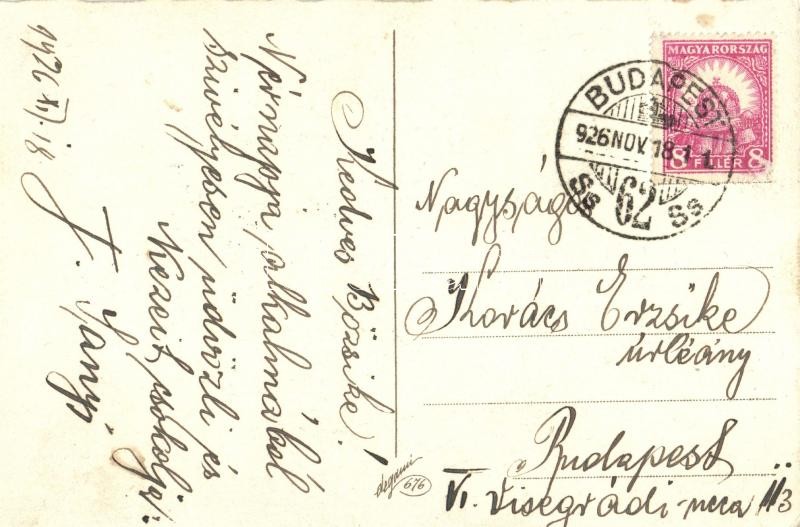 Kedves Bözsike!
Névnapja alkalmából
szivélyesen üdvözli és
Kezeit csókolja:
F. Sanyi
1926 XI. 18
MAGYARORSZÁG
8 FILLÉR 8
BUDAPEST
926 NOV. 18
62
Ss Ss
Nagyságos
Kovács Erzsike
úrleány
Budapest
VI. Visegrádi-ucca
676